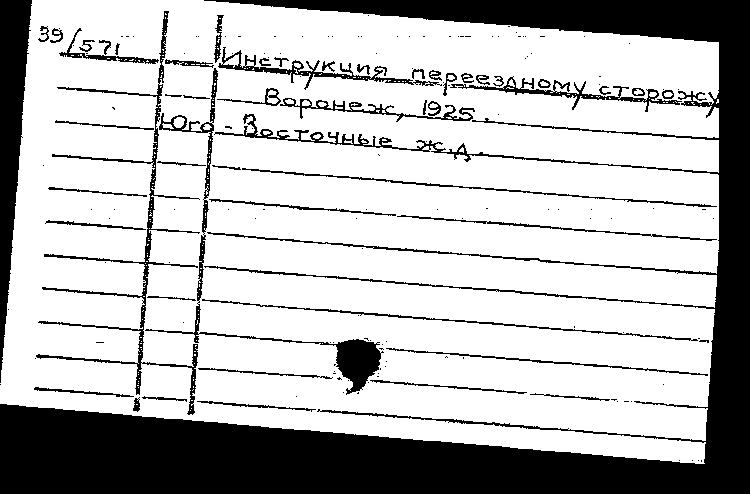 39/571
Инструкция переездному сторожу
Воронеж, 1925.
Юго-Восточные ж.д.